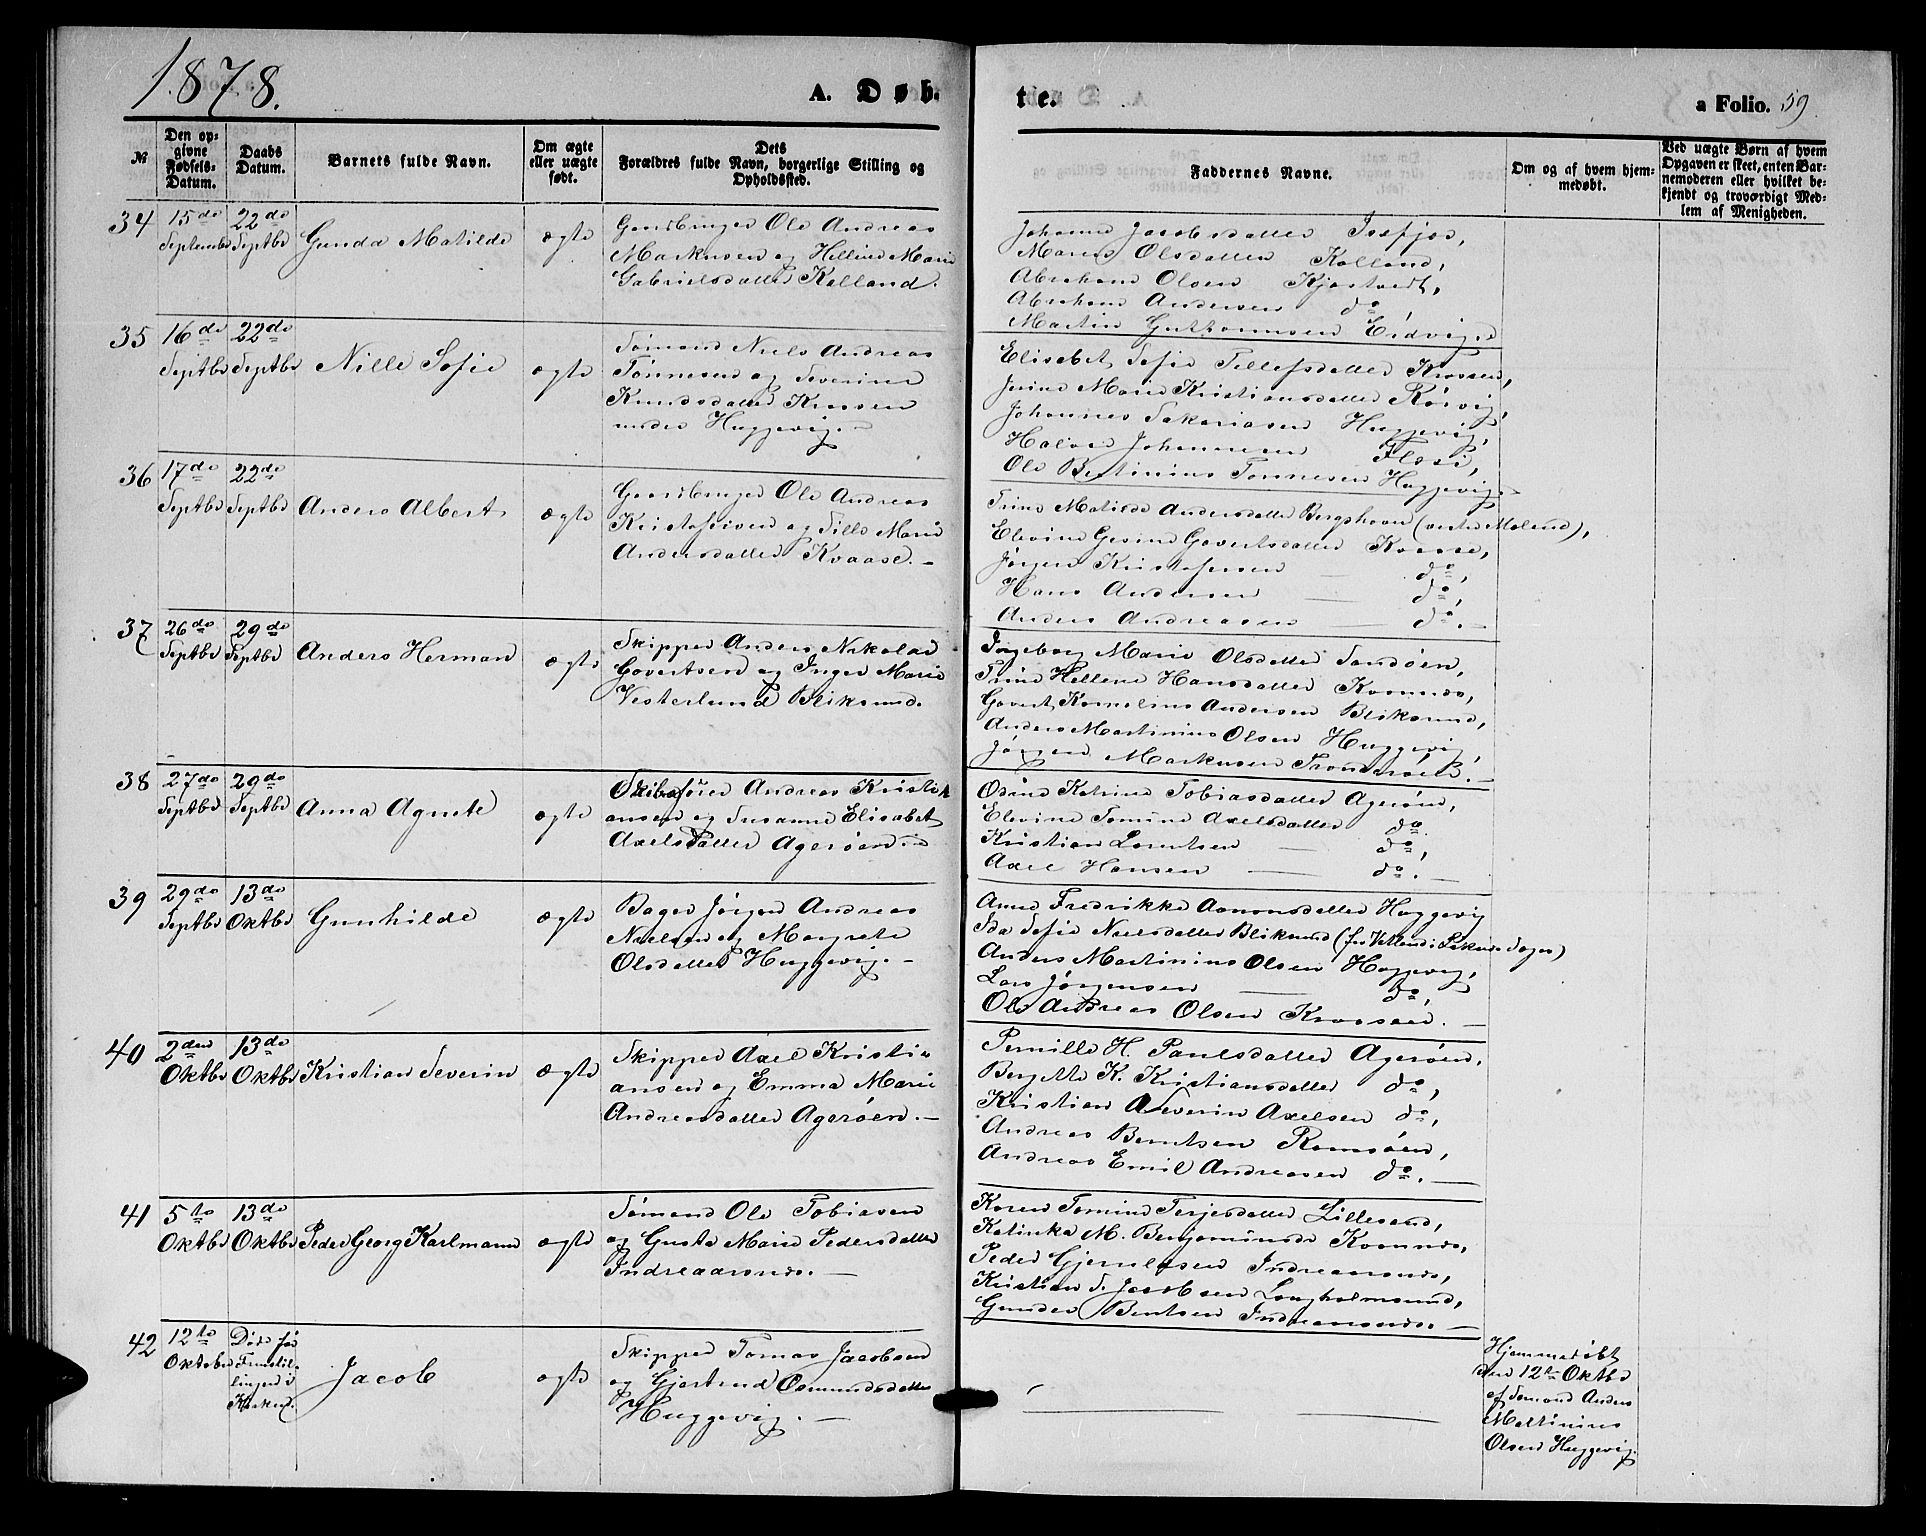 1878.
A. Døb-
te.
a Folio. 59
№
Den op-
givne
Fødsels-
Datum.
Daabs
Datum.
Barnets fulde Navn.
Om ægte
eller uægte
født.
Dets
Forældres fulde Navn, borgerlige Stilling og
Opholdssted.
Faddernes Navne.
Om og af hvem hjem-
medøbt.
Ved uægte Børn af hvem
Opgaven er skeet, enten Bar-
nemoderen eller hvilket be-
kjendt og troværdigt Med-
lem af Menigheden.
34
15de
Septembr
22de
Septbr
Gunda Matilde
ægte
Gaardbruger Ole Andreas
Markusen og Helline Marie
Gabrielsdatter Kalland.
Johanne Jacobsdatter Isefjær,
Maren Olsdatter Kalland,
Abraham Olsen Kjøstvedt,
Abraham Andersen do
Martin Guttormsen Eidvige
35
16de
Septbr
22de
Septbr
Nille Sofie
ægte
Sømand Niels Andreas
Tønnesen og Severine
Knudsdatter Krossen
under Huggevig.
Elisabet Sofie Tellefsdatter Krossen,
Jerine Marie Kristiansdatter Rørvig,
Johannes Sakariasen Huggevig,
Halvor Johannesen
Ole Bertinius Tønnesen Huggevig
36
17de
Septbr
22de
Septbr
Anders Albert
ægte
Gaardbruger Ole Andreas
Kristofersen og Sille Marie
Andersdatter Kvaase.
Trine Matilde Andersdatter Bergshaven (vestre Moland),
Elevine Gesine Govertsdatter Kvaase,
Jørgen Kristofersen do,
Hans Andersen do,
Anders Andreasen do.
37
26de
Septbr
29de
Septbr
Anders Herman
ægte
Skipper Anders Nikolai
Govertsen og Inger Marie
Vesterlund Bliksund.
Ingeborg Marie Olsdatter Sandøen,
Trine Hellene Hansdatter Kvannes,
Govert Kornelius Andersen Bliksund,
Anders Martinius Olsen Huggevig,
Jørgen Markusen Trondersøen.
38
27de
Septbr
29de
Septbr
Anna Agnete
ægte
Skibsfører Andreas Kristi
ansen og Susanne Elisabet
Axelsdatter Agerøen
Osine Katrine Tobiasdatter Agerøen,
Elevine Tomine Axelsdatter do.
Kristian Lorentsen do,
Axel Hansen do.
39
29de
Septbr
13de
Oktbr
Gunhilde
ægte
Bager Jørgen Andreas
Nielsen og Margrete
Olsdatter Huggevig.
Anne Fredrikke Aanonsdatter Huggevig
Ida Sofie Nielsdatter Bliksund (fra Vatland i Sogn)
Anders Martinius Olsen Huggevig,
Lars Jørgensen do,
Ole Andreas Olsen Krossen.
40
2den
Oktbr
13de
Oktbr
Kristian Severin
ægte
Skipper Axel Kristi
ansen og Emma Marie
Andreasdatter Agerøen.
Pernille H. Paulsdatter Agerøen,
Bergitte K. Kristiansdatter do,
Kristian Severin Axelsen do,
Andreas Berntsen Ramsøen,
Andreas Emil Andreasen do.
41
5te
Oktbr
13de
Oktbr
Peder Georg Karlmann
ægte
Sømand Ole Tobiasen
og Gusta Marie Pedersdatter
Indreaarsnes.
Karen Tomine Terjesdatter Lillesand,
Katinka M. Benjaminsdr Kvannes,
Peder Gjerulfsen Indreaarsnes,
Kristian S. Jacobsen Langholmsund,
Gunder Berntsen Indreaarsnes.
42
12te
Oktober
Døde før
Fremstil-
lingen i
Kirken.
Jacob
ægte
Skipper Tomas Jacobsen
og Gjertrud Osmundsdatter
Huggevig.
Hjemmedøbt
den 12te Oktbr
af Sømand Anders
Martinius
Olsen Huggevig.